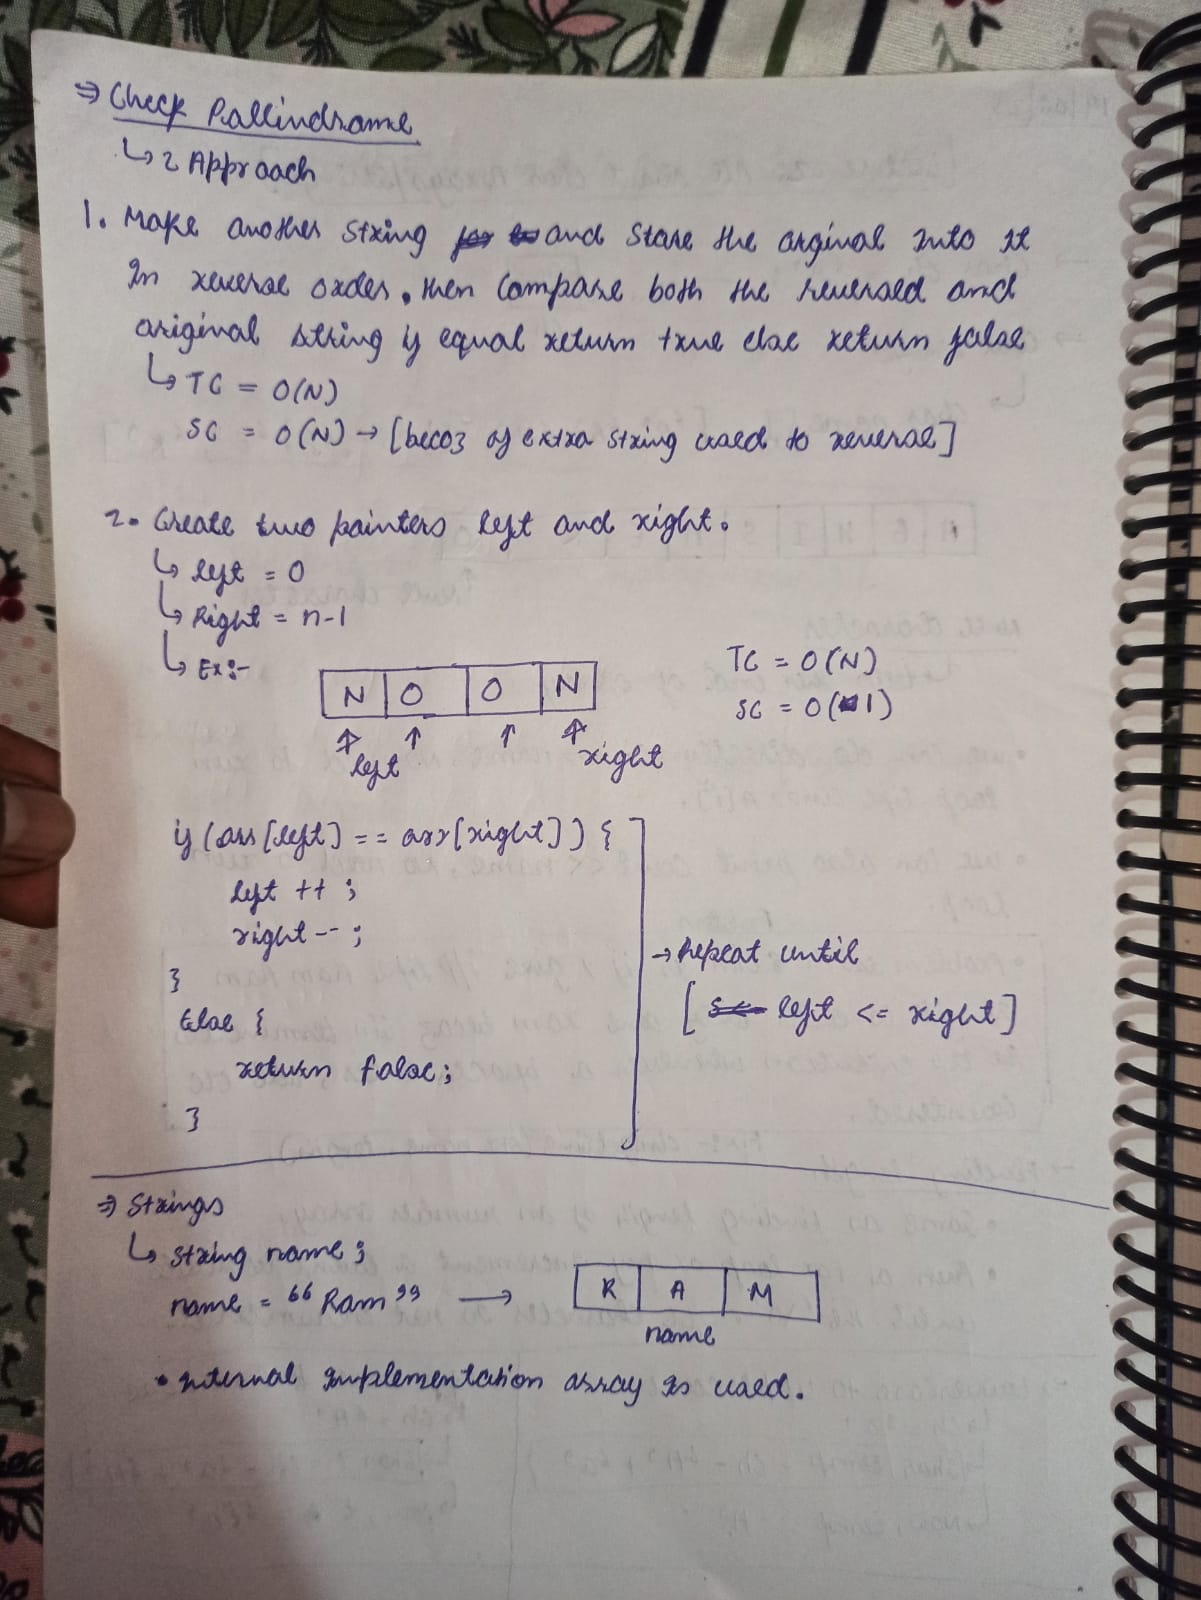 ⇒ Check Pallindrome
↳ 2 Approach
1. Make another string and store the orginal into it
In reverse order, then compare both the reversed and
original string if equal return true else return false
↳ TC = O(N)
SC = O(N) → [becoz of extra string used to reverse]
2. Create two pointers left and right.
↳ left = 0
↳ Right = n-1
↳ Ex:-
N O O N
TC = O(N)
SC = O(1)
↑ ↑ ↑ ↑
left right
if (arr[left] == arr[right]) {
left ++ ;
right -- ;
}
Else {
return false;
}
→ Repeat until
[ left <= right ]
⇒ Strings
↳ string name ;
name = "Ram" → R A M
name
• internal implementation array is used.